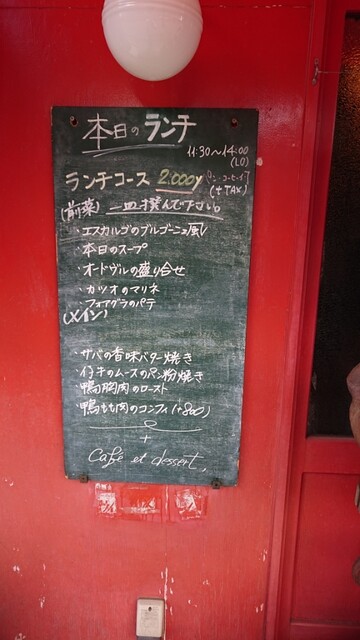 本日のランチ
11:30〜14:00
(LO)
ランチコース 2.000y
(+TAX)
(前菜) 一皿撰んで下さい。
・エスカルゴのブルゴーニュ風
・本日のスープ
・オードヴルの盛り合せ
・カツオのマリネ
・フォアグラのパテ
(メイン)
・サバの香味バター焼き
・イトヨのムースのパン粉焼き
・鴨胸肉のロースト
・鴨もも肉のコンフィ(+800)
+
Café et dessert.